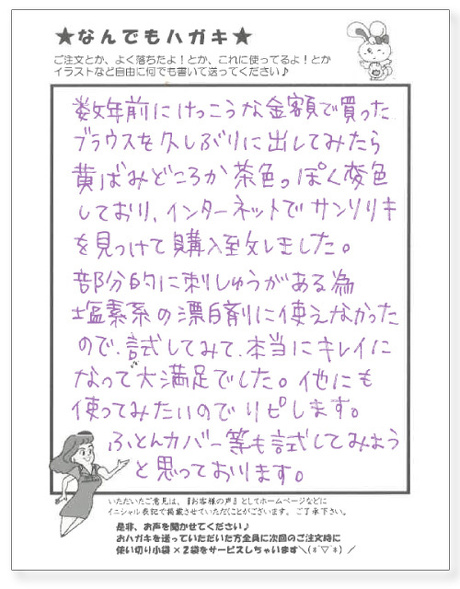 ★なんでもハガキ★
ご注文とか、よく落ちたよ!とか、これに使ってるよ!とか
イラストなど自由に何でも書いて送ってください♪
数年前にけっこうな金額で買った
ブラウスを久しぶりに出してみたら
黄ばみどころか茶色っぽく変色
しており、インターネットでサンソリキ
を見つけて購入致しました。
部分的に刺しゅうがある為
塩素系の漂白剤に使えなかった
ので、試してみて、本当にキレイに
なって大満足でした。他にも
使ってみたいのでリピします。
ふとんカバー等も試してみよう
と思っております。
いただいたご意見は、『お客様の声』としてホームページなどに
イニシャル表記で掲載させていただくことがございます。ご了承下さい。
是非、お声を聞かせてください♪
おハガキを送っていただいた方全員に次回のご注文時に
使い切り小袋×2袋をサービスしちゃいます＼(*´▽`*)／